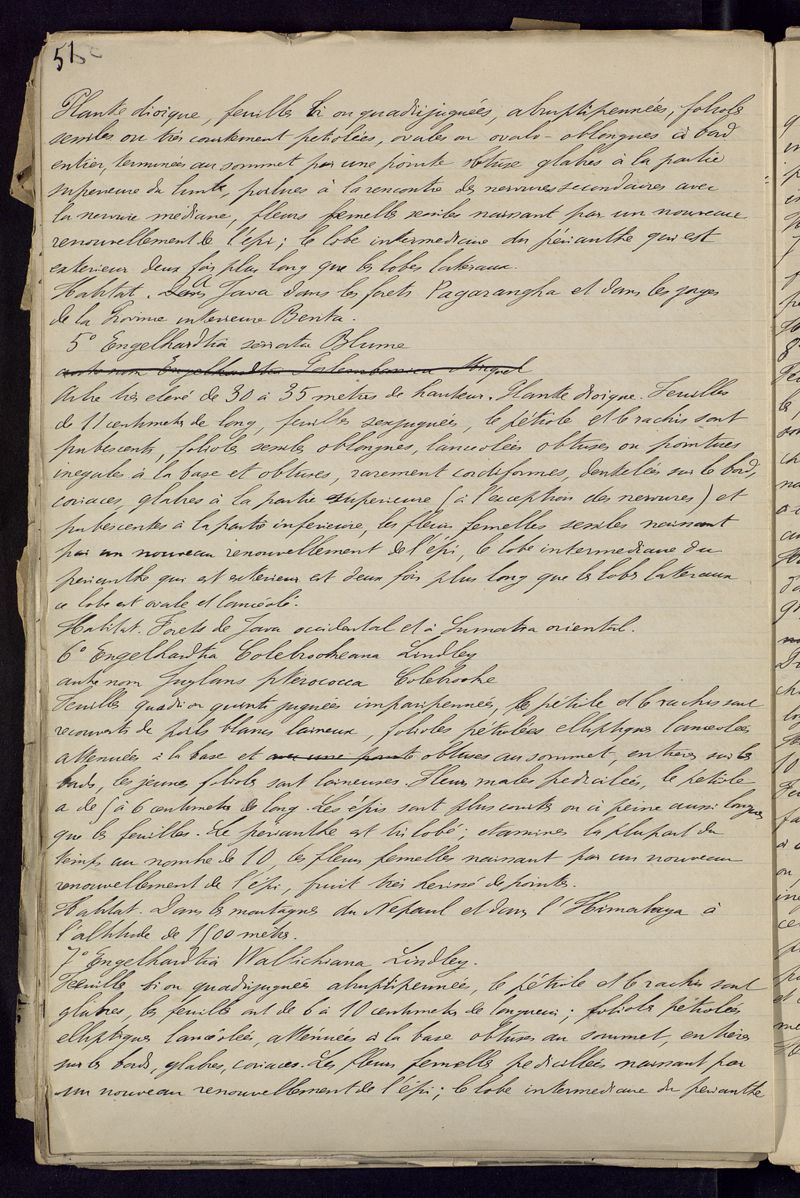 51
Plante dioique, feuilles tri ou quadrijuguées, abruptipennées, folioles
sessiles ou très courtement petiolées, ovales ou ovalo-oblongues à bord
entier, terminées au sommet par une pointe obtuse glabres à la partie
superieure du limbe, poilues à la rencontre des nervures secondaires avec
la nervure médiane, fleurs femelles sessiles naissant par un nouveau
renouvellement de l'épi; le lobe intermediaire du périanthe qui est
exterieur deux fois plus long que les lobes lateraux.
Habitat. Dans Java dans les forets Pagarangha et dans les gorges
de la Province interieure Benta.
5° Engelhardtia serrata Blume
autre nom Engelhardtia Miquel
Arbre très elevé de 30 à 35 mètres de hauteur. Plante dioique. Feuilles
de 11 centimetres de long, feuilles sexjuguées, le pétiole et le rachis sont
pubescents, folioles sessiles oblongues, lanceolées obtuses ou pointues
inegales à la base et obtuses, rarement cordiformes, dentelées sur le bord,
coriaces, glabres à la partie superieure (à l'exception des nervures) et
pubescentes à la partie inferieure, les fleurs femelles sessiles naissant
par un nouveau renouvellement de l'épi, le lobe intermediaire du
perianthe qui est exterieur est deux fois plus long que les lobes lateraux
ce lobe est ovale et lancéolé.
Habitat. Forets de Java occidental et à Sumatra oriental.
6° Engelhardtia Colebrookeana Lindley
autre nom Juglans pterococca Colebrooke
Feuilles quadri ou quintijuguées imparipennées, le pétiole et le rachis sont
recouverts de poils blancs laineux, folioles pétiolées elliptiques lanceolées
attenuées à la base et avec une pointe obtuses au sommet, entières sur les
bords, les jeunes folioles sont laineuses. Fleurs males pedicellées, le petiole
a de 5 à 6 centimetres de long. Les épis sont plus courts ou à peine aussi longues
que les feuilles. Le périanthe est trilobé; etamines la plupart du
temps au nombre de 10, les fleurs femelles naissant par un nouveau
renouvellement de l'épi, fruit très herissé de pointes.
Habitat. Dans les montagnes du Nepaul et dans l'Himalaya à
l'altitude de 1500 mètres.
7° Engelhardtia Wallichiana Lindley.
Feuilles tri ou quadrijuguées abruptipennées, le pétiole et le rachis sont
glabres, les feuilles ont de 6 à 10 centimetres de longueur; folioles pétiolées
elliptiques lancéolées, atténuées à la base obtuses au sommet, entières
sur les bords, glabres, coriaces. Les fleurs femelles pedicellées naissant par
un nouveau renouvellement de l'épi; le lobe intermediaire du perianthe